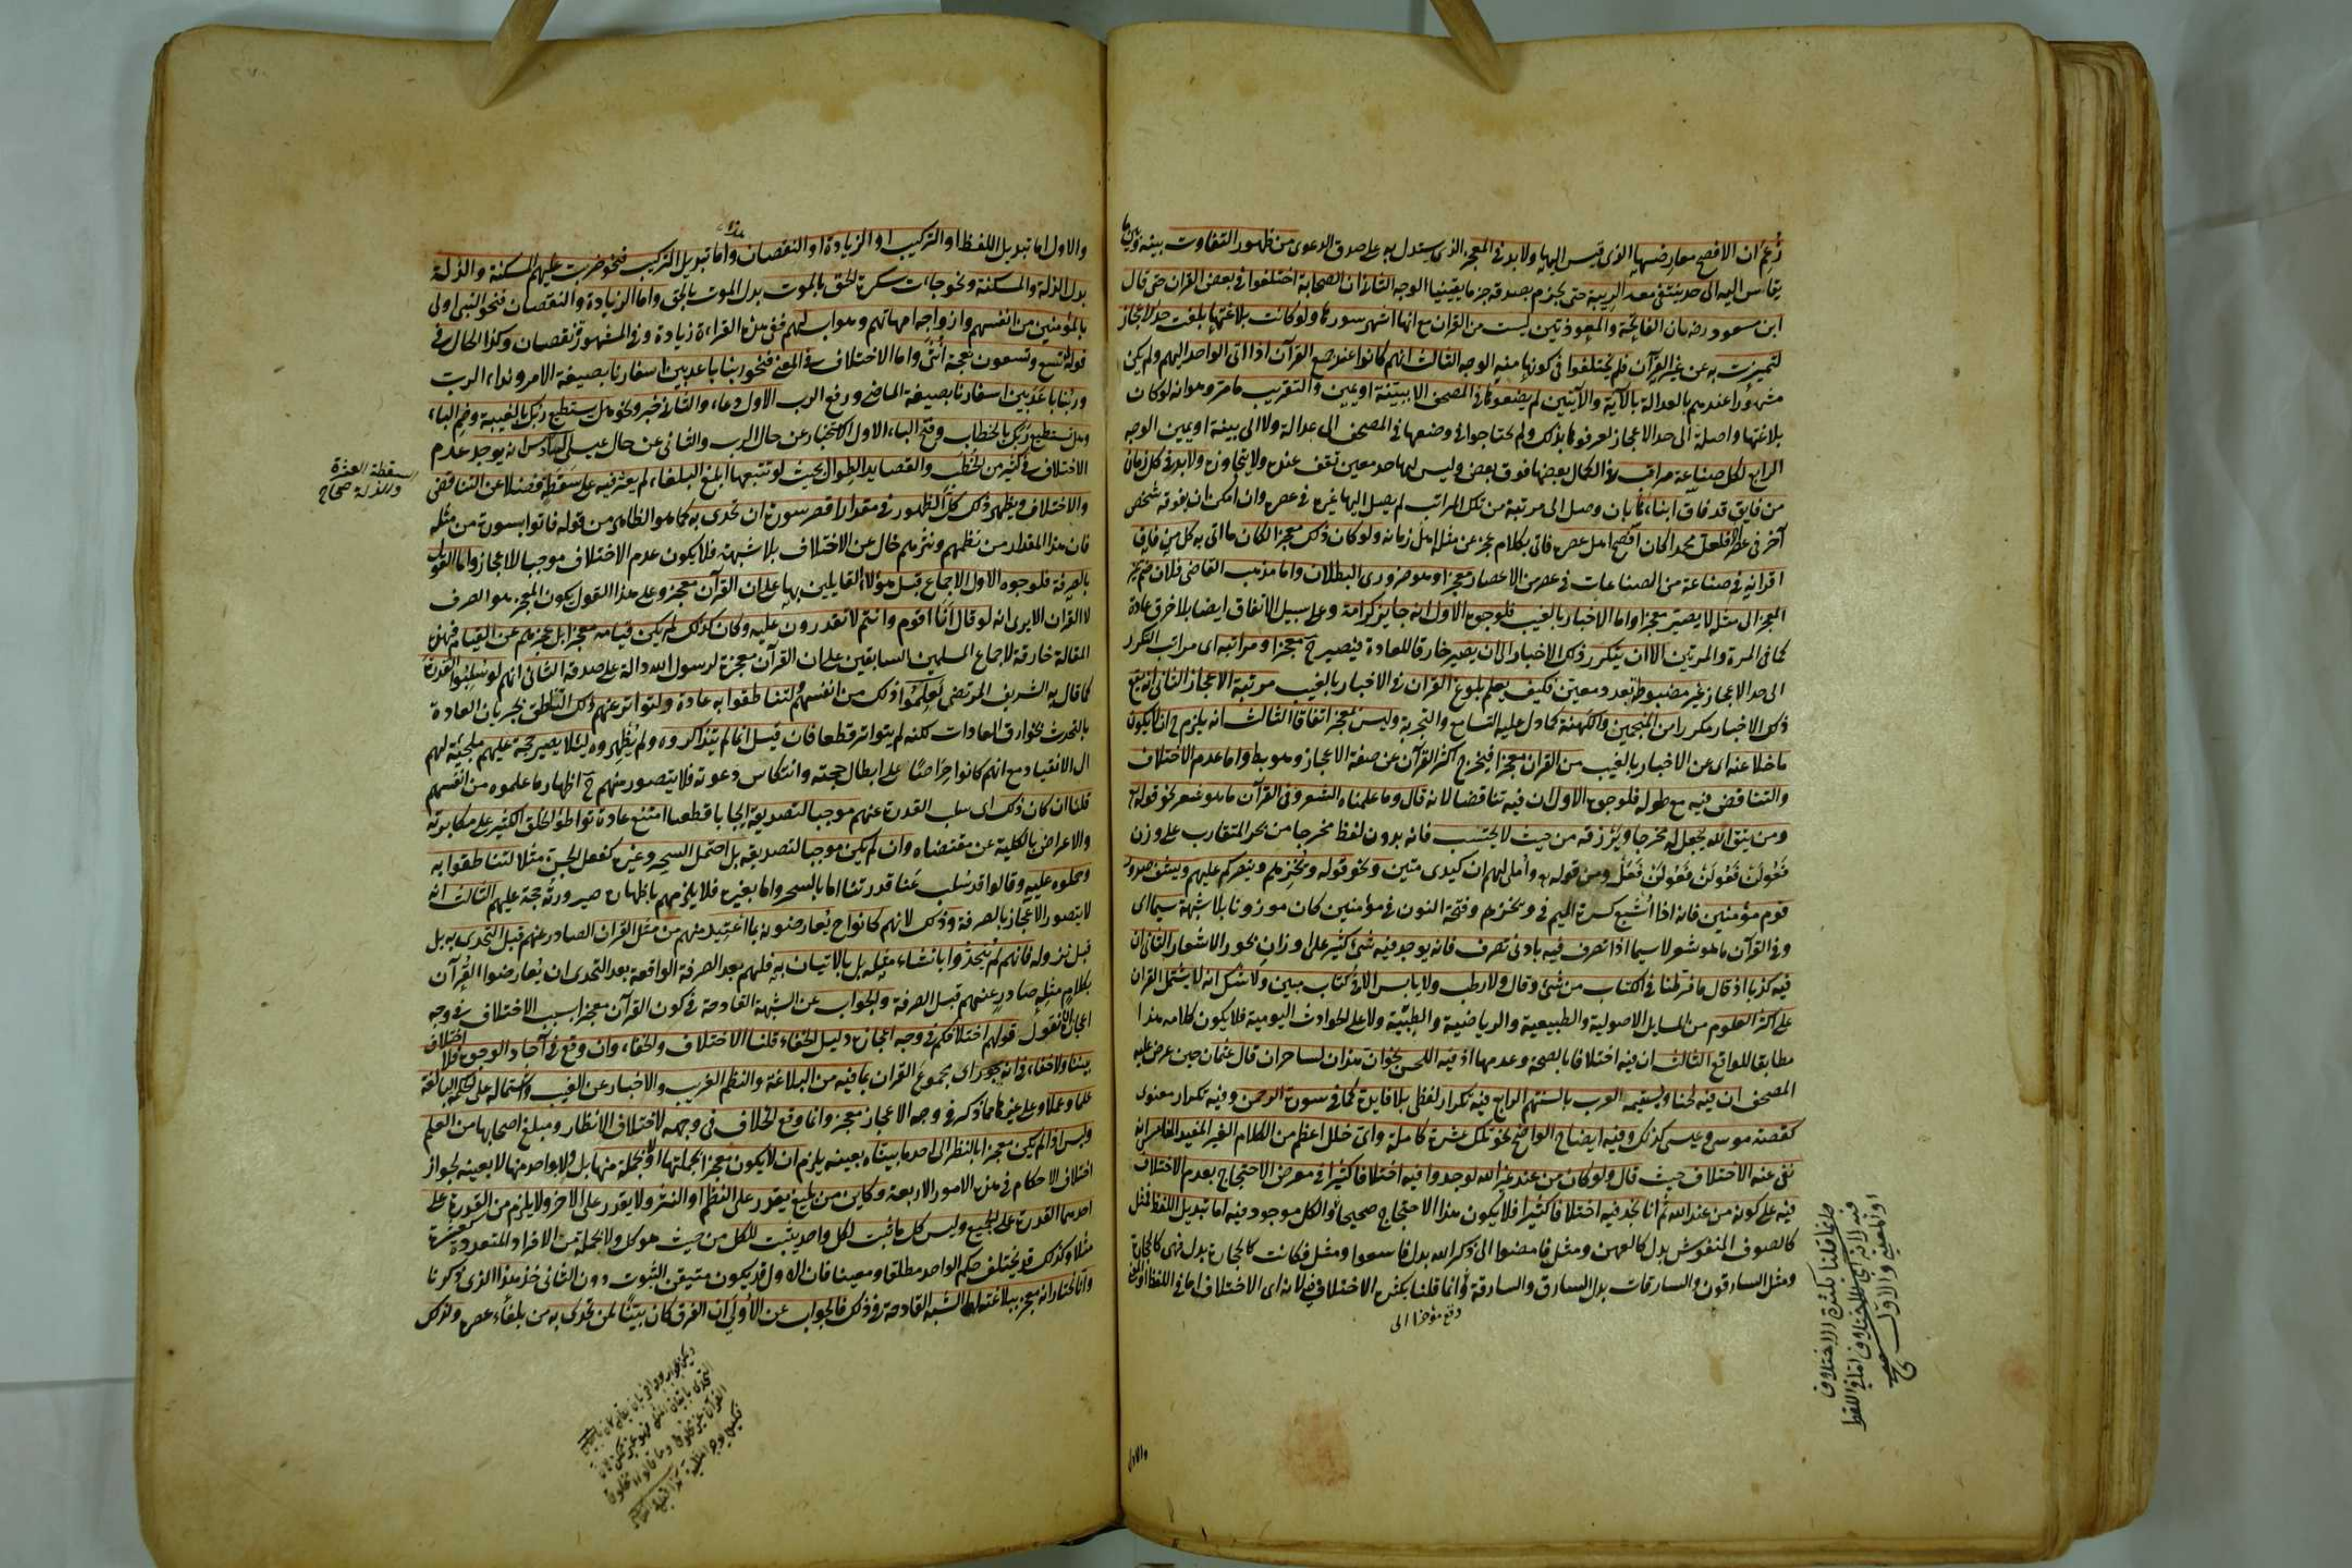 زعم ان الافصح معارضتها الذى قيس اليها ولا بد فى المعجز الذى يستدل به على صدق الدعوى من ظهور التفاوت بينه وبين ما
يقاس اليه الى حد ينتفى معه الريبة حتى يجزم بصدقه جزما يقينيا الوجه الثانى ان الصحابة اختلفوا فى بعض القران حتى قال
ابن مسعود رضه بان الفاتحة والمعوذتين ليست من القران مع انها اشهر سوره ولو كانت بلاغتها بلغت حد الاعجاز
لتميزت به عن غير القرآن فلم يختلفوا فى كونها منه الوجه الثالث انهم كانوا عند جمع القرآن اذا اتى الواحد اليهم ولم يكن
مشهورا عندهم بالعدالة بالآية والآيتين لم يضعوها فى المصحف الا ببينة او يمين والتقريب ما مر وهو انه لو كان
بلاغتها واصلة الى حد الاعجاز لعرفوها بذلك ولم يحتاجوا فى وضعها فى المصحف الى عدالة ولا الى بينة او يمين الوجه
الرابع لكل صناعة مراتب فى الكمال بعضها فوق بعض وليس لها حد معين تقف عنده ولا يتجاوزه ولا بد فى كل زمان
من فايق قد فاق ابناءه بان وصل الى مرتبة من تلك المراتب لم يصل اليها غيره فى عصره وان امكن ان يفوقه شخص
آخر فى عصر فلعل محمدا كان افصح اهل عصره فاتى بكلام عجز عن مثله اهل زمانه ولو كان ذلك معجزا لكان ما اتى به كل من فاق
اقرانه فى صناعة من الصناعات فى عصر من الاعصار معجزا وهو ضرورى البطلان واما مذهب القاضى فلان ضم غير
المعجز الى مثله لا يصير معجزا واما الاخبار بالغيب فلوجوه الاول انه جايز كرامة وعلى سبيل الاتفاق ايضا بلا خرق عادة
كما فى المرة والمرتين الا ان يتكرر ذلك الاخبار الى ان يصير خارقا للعادة فيصير ح معجزا ومراتبه اى مراتب التكرر
الى حد الاعجاز غير مضبوطة بعدد معين فكيف يعلم بلوغ القران فى الاخبار بالغيب مرتبة الاعجاز الثانى انه يقع
ذلك الاخبار مكررا من المنجمين والكهنة كما دل عليه التسامع والتجربة وليس بمعجز اتفاقا الثالث انه يلزم ح ان لا يكون
ما خلا عنه اى عن الاخبار بالغيب من القران معجزا فيخرج اكثر القرآن عن صفة الاعجاز وهو بط واما عدم الاختلاف
والتناقض فيه مع طوله فلوجوه الاول ان فيه تناقضا لانه قال وما علمناه الشعر وفى القرآن ما هو شعر نحو قوله
ومن يتق الله يجعل له مخرجا ويرزقه من حيث لا يحتسب فانه بدون لفظ مخرجا من بحر المتقارب على وزن
فعولن فعولن فعولن فعل ومن قوله واملى لهم ان كيدى متين ونحو قوله ويخزهم وينصركم عليهم ويشف صدور
قوم مؤمنين فانه اذا اشبع كسرة الميم فى ويخزهم وفتحة النون فى مؤمنين كان موزونا بلا شبهة سيما اى
وفى القرآن ما هو شعر لا سيما اذا تصرف فيه بادنى تصرف فانه يوجد فيه شئ كثير على اوزان بحور الاشعار الثانى ان
فيه كذبا اذ قال ما فرطنا فى الكتاب من شئ وقال ولا رطب ولا يابس الا فى كتاب مبين ولا شك انه لا يشتمل القران
على اكثر العلوم من المسايل الاصولية والطبيعية والرياضية والطبية ولا على الحوادث اليومية فلا يكون كلامه هذا
مطابقا للواقع الثالث ان فيه اختلافا بالصحة وعدمها اذ فيه اللحن نحو ان هذان لساحران قال عثمان حين عرض عليه
المصحف ان فيه لحنا وستقيمه العرب بالسنتهم الرابع فيه تكرار لفظى بلا فايدة كما فى سورة الرحمن وفيه تكرار معنوى
كقصة موسى وعيسى كذلك وفيه ايضاح الواضح نحو تلك عشرة كاملة واى خلل اعظم من الكلام الغير المفيد الخامس انه
نفى عنه الاختلاف حيث قال ولو كان من عند غير الله لوجدوا فيه اختلافا كثيرا فى معرض الاحتجاج بعدم الاختلاف
فيه على كونه من عند الله ثم انا نجد فيه اختلافا كثيرا فلا يكون هذا الاحتجاج صحيحا والكل موجود فيه اما تبديل اللفظ فمثل
كالصوف المنفوش بدل كالعهن ومثل فامضوا الى ذكر الله بدل فاسعوا ومثل فكانت كالحجارة بدل فهى كالحجارة
ومثل السارقون والسارقات بدل السارق والسارقة وانما قلنا بكثرة الاختلاف فيه لانه اى الاختلاف اما فى اللفظ او المعنى
وانما قلنا بكثرة الاختلاف
فيه لانه اى الاختلاف اما فى اللفظ
او المعنى والاول صح
والاول
والاول اما تبديل اللفظ او التركيب او الزيادة او النقصان واما تبديل التركيب فنحو ضربت عليهم المسكنة والذلة
بدل الذلة والمسكنة ونحو جاءت سكرة الحق بالموت بدل الموت بالحق واما الزيادة والنقصان فنحو النبى اولى
بالمؤمنين من انفسهم وازواجه امهاتهم وهو اب لهم ففى هذه القراءة زيادة وفى المشهورة نقصان وكذا الحال فى
قوله تسع وتسعون نعجة انثى واما الاختلاف فى المعنى فنحو ربنا باعد بين اسفارنا بصيغة الامر ونداء الرب
وربنا باعد بين اسفارنا بصيغة الماضى ورفع الرب الاول دعاء والثانى خبر ونحو هل يستطيع ربك بالغيبة وضم الباء
وهل تستطيع ربك بالخطاب وفتح الباء الاول استخبار عن حال الرب والثانى عن حال عيسى السادس انه يوجد عدم
الاختلاف فى كثير من الخطب والقصايد الطوال بحيث لو تتبعها ابلغ البلغاء لم يعثر فيه على سقطة فضلا عن التناقض
والاختلاف ويظهر ذلك كل الظهور فى مقدار اقصر سورة ان تحدى به كما هو الظاهر من قوله فاتوا بسورة من مثله
فان هذا المقدار من نظمهم ونثرهم خال عن الاختلاف بلا شبهة فلا يكون عدم الاختلاف موجبا للاعجاز واما القول
بالصرفة فلوجوه الاول الاجماع قبل هؤلاء القايلين بها على ان القرآن معجز وعلى هذا القول يكون المعجز هو الصرف
لا القران الا يرى انه لو قال انا اقوم وانتم لا تقدرون عليه وكان كذلك لم يكن قيامه معجزا بل عجزهم عن القيام فهذه
المقالة خارقة لاجماع المسلمين السابقين على ان القرآن معجزة لرسول الله دالة على صدقه الثانى انهم لو سلبوا القدرة
كما قال به الشريف المرتضى لعلموا ذلك من انفسهم ولتناطقوا به عادة ولتواتر عنهم ذلك التناطق بجريان العادة
بالتحدث بخوارق العادات لكنه لم يتواتر قطعا فان قيل انما لم يتذاكروه ولم يظهروه لئلا يصير حجة عليهم ملجئة لهم
الى الانقياد مع انهم كانوا حراصا على ابطال حجته وانتكاس دعوته فلا يتصور منهم ح اظهار ما علموه من انفسهم
قلنا ان كان ذلك اى سلب القدرة عنهم موجبا لتصديقه ايجابا قطعيا امتنع عادة تواطؤ الخلق الكثير على مكابرته
والاعراض بالكلية عن مقتضاه وان لم يكن موجبا لتصديقه بل احتمل السحر وغيره كفعل الجن مثلا لتناطقوا به
وحملوه عليه وقالوا قد سلب عنا قدرتنا اما بالسحر واما بغيره فلا يلزمهم باظهاره صيرورته حجة عليهم الثالث انه
لا يتصور الاعجاز بالصرفة وذلك لانهم كانوا ح يعارضونه بما اعتيد منهم من مثل القران الصادر عنهم قبل التحدى به بل
قبل نزوله فانهم لم يتحدوا بانشاء مثله بل بالاتيان به فلهم بعد الصرفة الواقعة بعد التحدى ان يعارضوا القرآن
بكلام مثله صادر عنهم قبل الصرفة والجواب عن الشبهة القادحة فى كون القرآن معجزا بسبب الاختلاف فى وجه
اعجازه ان نقول قولهم اختلافكم فى وجه اعجازه دليل الخفاء قلنا الاختلاف والخفاء وان وقع فى آحاد الوجوه فلا اختلاف
بيننا ولا خفاء فى انه اى مجموع القران بما فيه من البلاغة والنظم الغريب والاخبار عن الغيب واشتماله على الحكمة البالغة
علما وعملا وعلى غيرها مما ذكر فى وجه الاعجاز معجز وانما وقع الخلاف فى وجهه لاختلاف الانظار ومبلغ اصحابها من العلم
وليس اذا لم يكن معجزا بالنظر الى احد ما بيناه بعينه يلزم ان لا يكون معجزا بجملتها او بجملة منها بل ولا بواحد منها لا بعينه لجواز
اختلاف الاحكام فى هذه الامور الاربعة وكاين من بليغ يقدر على النظم او النثر ولا يقدر على الاخر ولا يلزم من القدرة على
احدهما القدرة على الجميع وليس كل ما ثبت لكل واحد يثبت للكل من حيث هو كل ولا بجملة من الافراد المتعددة كعشرة
مثلا وكذلك قد يختلف حكم الواحد مطلقا ومعينا فان الاول قد يكون متيقن الثبوت دون الثانى خذ هذا الذى ذكرنا
وانا نختار انه معجز ببلاغته الشبه القادحة فى ذلك فالجواب عن الاولى ان الفرق كان بينا لمن تحدى به من بلغاء عصره ولذلك
السقطة العثرة
والزلة صحاح